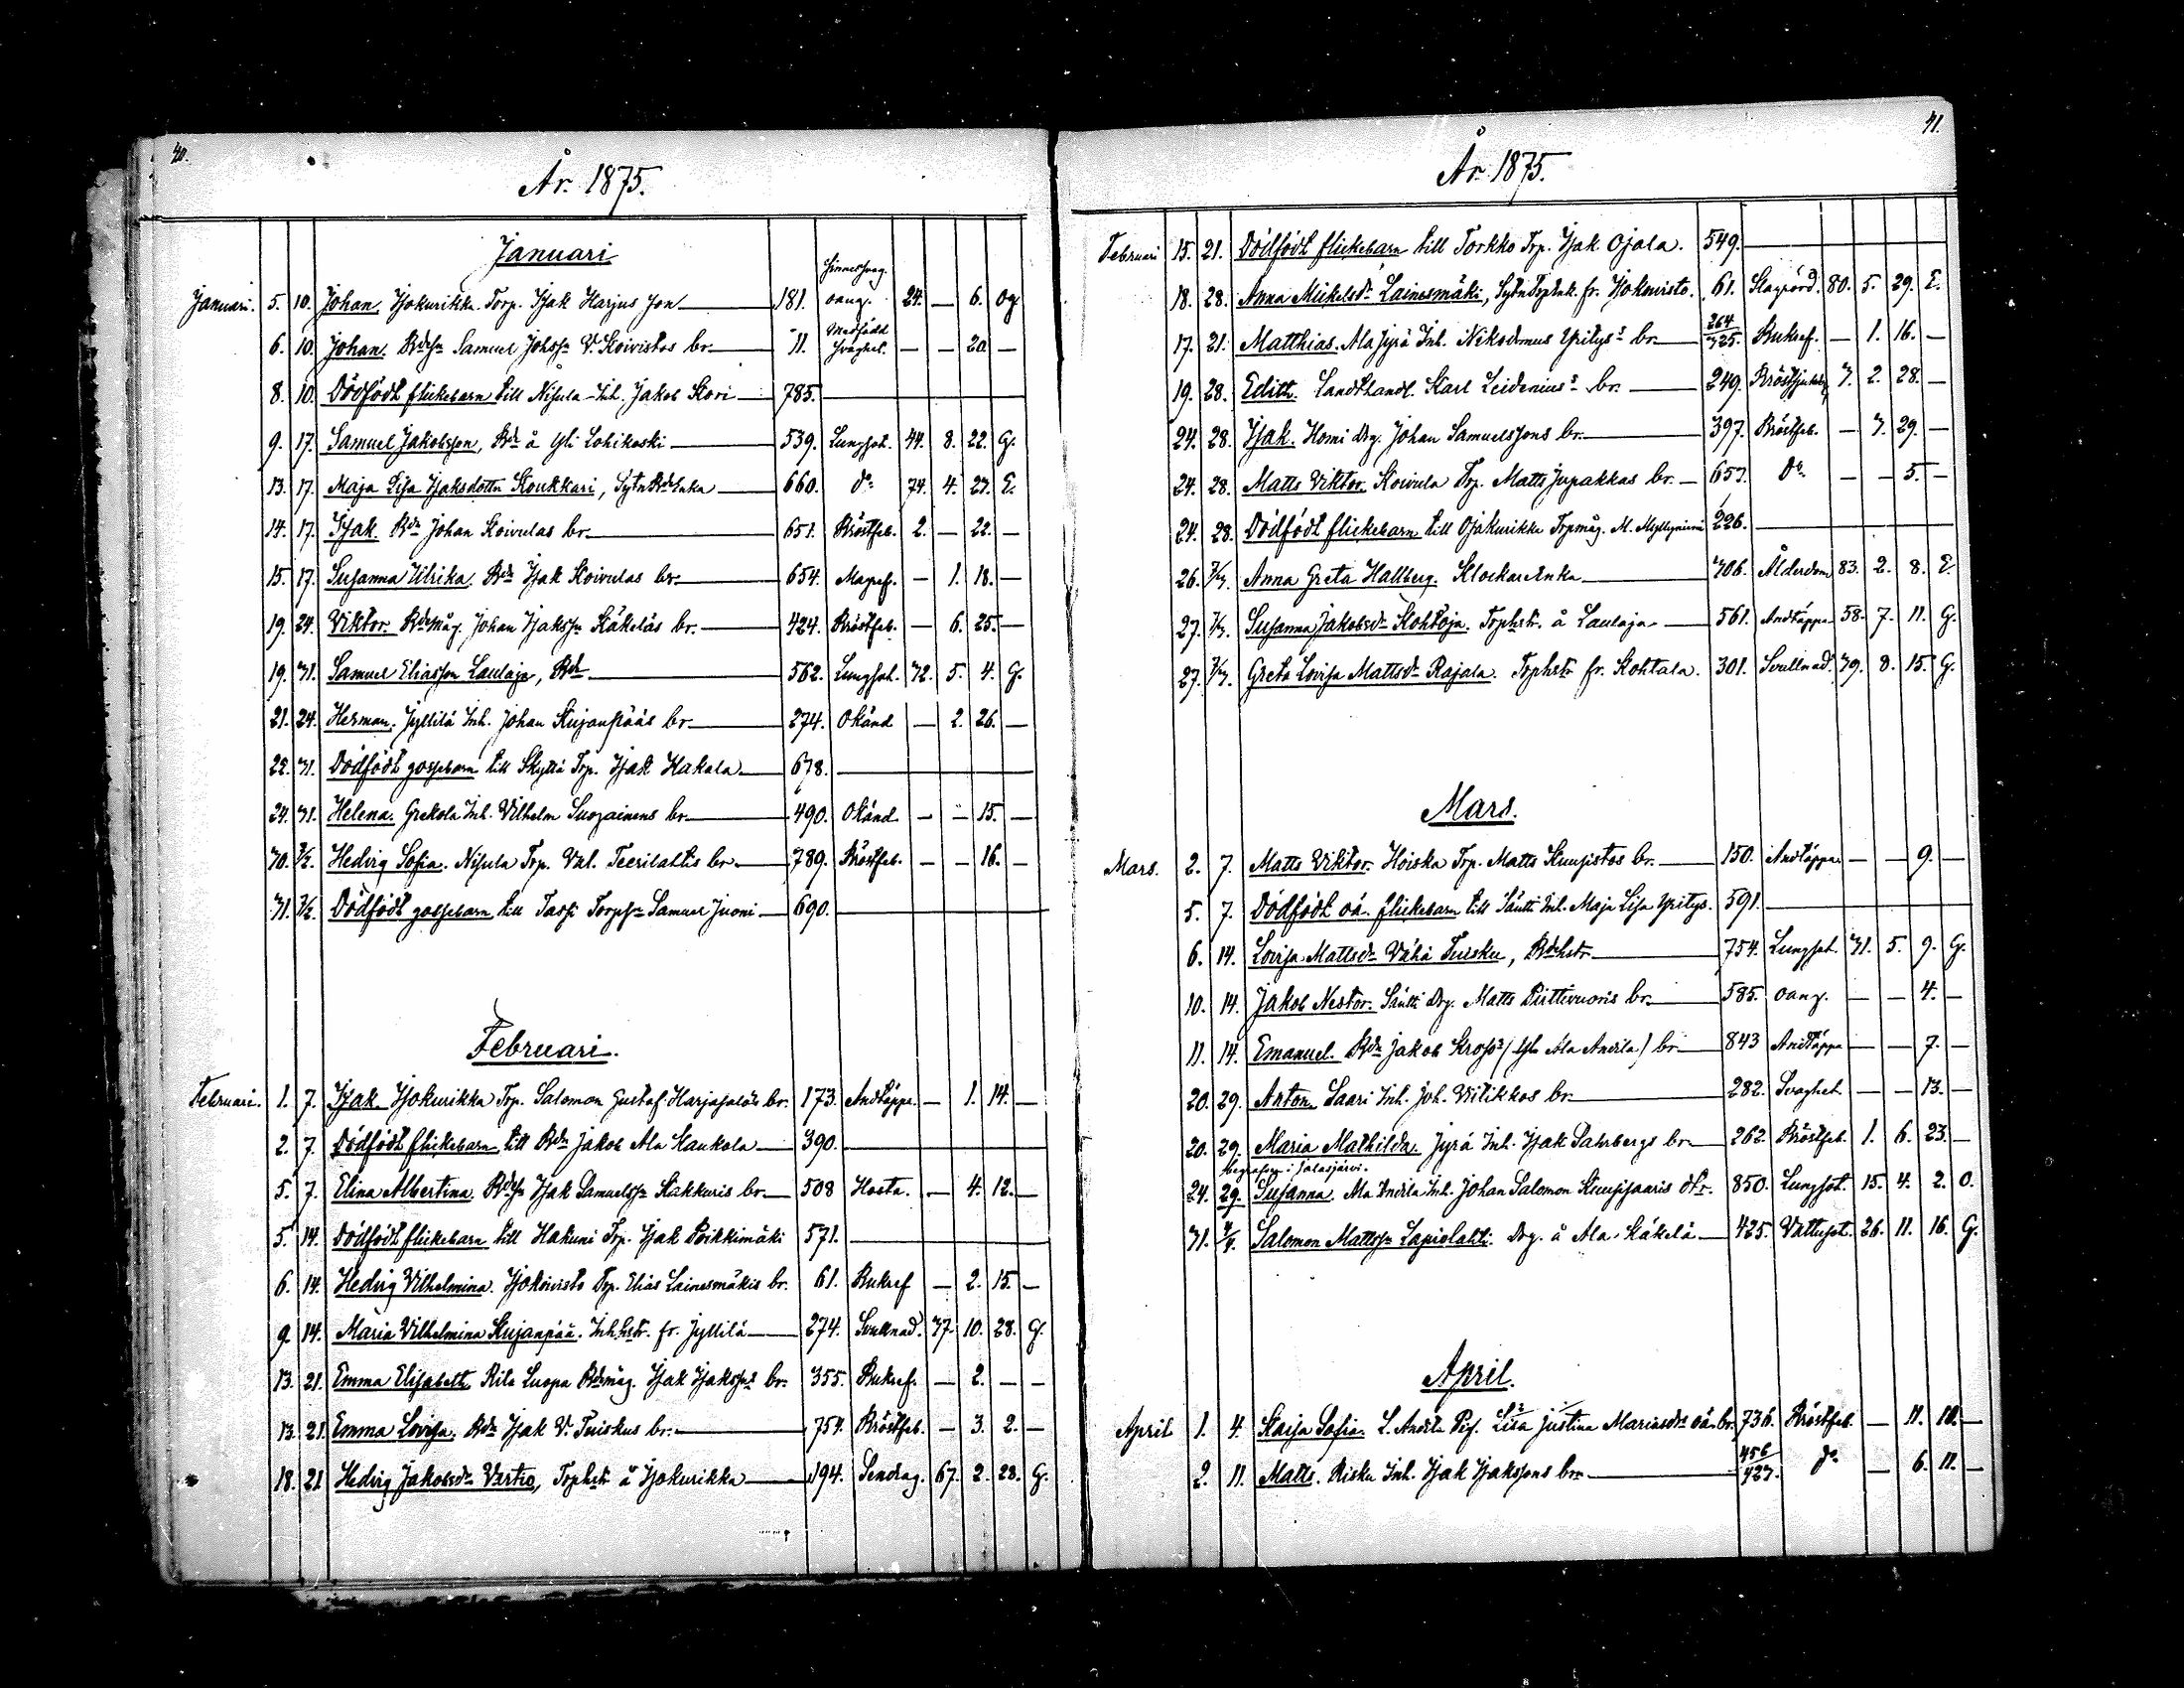 40.
År. 1875.
Januari
Januari. 5. 10. Johan. Ijokurikka Torp. Isak Harjus son 181. Sinnessvag. oang. 24. — 6. Og
6. 10. Johan. Bdesn Samuel Johssn V. Koivistos br. 11. Medfödd svaghet. — — 20. —
8. 10. Dödfödt flickebarn till Nisula Inh. Jakob Kori 785.
9. 17. Samuel Jakobsson, Bde å Yli Lohikoski 539. Lungsot. 44. 8. 22. G.
13. 17. Maja Lisa Isaksdotter Koukkari, SytnBdeEnka 660. do 74. 4. 27. E.
14. 17. Isak. Bdn Johan Koivulas br. 651. Bröstfeb. 2. — 22. —
15. 17. Susanna Ulrika. Bdn Isak Koivulas br. 654. Magref. — 1. 18. —
19. 24. Viktor. Bdemåg. Johan Isakssn Käkeläs br. 424. Bröstfeb. — 6. 25. —
19. 31. Samuel Eliasson Laulaja, Bde 562. Lungsot. 72. 5. 4. G.
21. 24. Herman. Jyllilä Inh. Johan Kujanpääs br. 274. Okänd — 2. 26. —
22. 31. Dödfödt gossebarn till Skyttä Trp. Isak Hakala 678.
24. 31. Helena. Grekola Inh. Vilhelm Suozainens br. 490. Okänd — — 15. —
30. 7/2. Hedvig Sofia. Nisula Trp. Val. Teerilahtis br. 789. Bröstfeb. — — 16. —
31. 7/2. Dödfödt gossebarn till Passi Torpsn Samuel Juoni 690.
Februari.
Februari. 1. 7. Isak Ijokurikka Trp. Salomon Gustaf Harjasalos br. 173. Andtäppa. — 1. 14. —
2. 7. Dödfödt flickebarn till Bdn Jakob Ala Kaukola 390.
5. 7. Elina Albertina. Bdesn Isak Samuelssn Kukkuris br. 508 Hosta. — 4. 12. —
5. 14. Dödfödt flickebarn till Hakuni Trp. Isak Poikkimäki 571.
6. 14. Hedvig Vilhelmina. Ijokoivisto Trp. Elias Lainesmäkis br. 61. Bukref — 2. 15. —
9. 14. Maria Vilhelmina Kujanpää. Inhhstr. fr. Jyllilä 274. Svullnad. 37. 10. 28. G.
13. 21. Emma Elisabeth Rila Luopa Bdemåg. Isak Isakssns br. 355. Bukref. — 2. — —
13. 21. Emma Lovisa. Bdn Isak V. Tuiskus br. 754. Bröstfeb. — 3. 2. —
18. 21. Hedvig Jakobsdr Vartio, Trphstr å Ijokurikka 194. Sendrag. 67. 2. 28. G.
41.
År. 1875.
Februari 15. 21. Dödfödt flickebarn till Torkko Trp. Isak Ojala. 549.
18. 28. Anna Mickelsdr Lainesmäki, SytnTrpEnk. fr. Ijokoivisto. 61. Slagrörd. 80. 5. 29. E.
17. 21. Matthias. Ala Jyrä Inh. Nikodemus Yritys's br. 264/325. Bukref. — 1. 16. —
19. 28. Edith. Landthandl. Karl Leidenius's br. 249. 3. 2. 28. —
24. 28. Isak. Homi Drg. Johan Samuelssons br. 397. Bröstfeb. — 3. 29. —
24. 28. Matts Viktor. Koivula Trp. Matts Jupakkas br. 653. do — — 5. —
24. 28. Dödfödt flickebarn till Ojakurikka Trpmåg. M. Myllyniemi 226.
26. 7/3. Anna Greta Hallberg. KlockareEnka 306. Ålderdom 83. 2. 8. E.
27. 7/3. Susanna Jakobsdr Kohtoja. Trphstr. å Laulaja 561. Andtäppa 58. 7. 11. G.
27. 7/3. Greta Lovisa Mattsdr Rajala. Trphstr fr. Kohtala. 301. Svullnad. 39. 8. 15. G.
Mars.
Mars. 2. 7. Matts Viktor. Hoiska Trp. Matts Kuusistos br. 150. Andtäppa — — 9. —
5. 7. Dödfödt oä. flickebarn till Säntti Inh. Maja Lisa Yritys. 591.
6. 14. Lovisa Mattsdr Vähä Tuisku, Bdehstr 754. Lungsot. 31. 5. 9. G.
10. 14. Jakob Nestor. Säntti Drg. Matts Pirttivuoris br. 585. oang. — — 4. —
11. 14. Emanuel. Bdn Jakob Kross's (Yli Ala Anrila) br. 843 Andtäppa — — 7. —
20. 29. Anton. Saari Inh. Joh. Viitikkos br. 282. Svaghet. — — 13. —
20. 29. Maria Mathilda. Jyrä Inh. Isak Sahrbergs br. 262. Bröstfeb. 1. 6. 23. —
begrafvg i Jalasjärvi.
24. 29. Susanna. Ala Anrila Inh. Johan Salomon Kuusisaaris dtr. 850. Lungsot. 15. 4. 2. O.
31. 4/4. Salomon Mattssn Lapiolahti. Drg. å Ala-Käkelä 425. Vattusot. 26. 11. 16. G.
April.
April. 1. 4. Kaisa Sofia. L. Anrila Pig. Lisa Justina Mariasdrs oä. br. 736. Bröstfeb. — 11. 10. —
2. 11. Matts. Risku Inh. Isak Isakssons br. 456/427. do — 6. 11. —